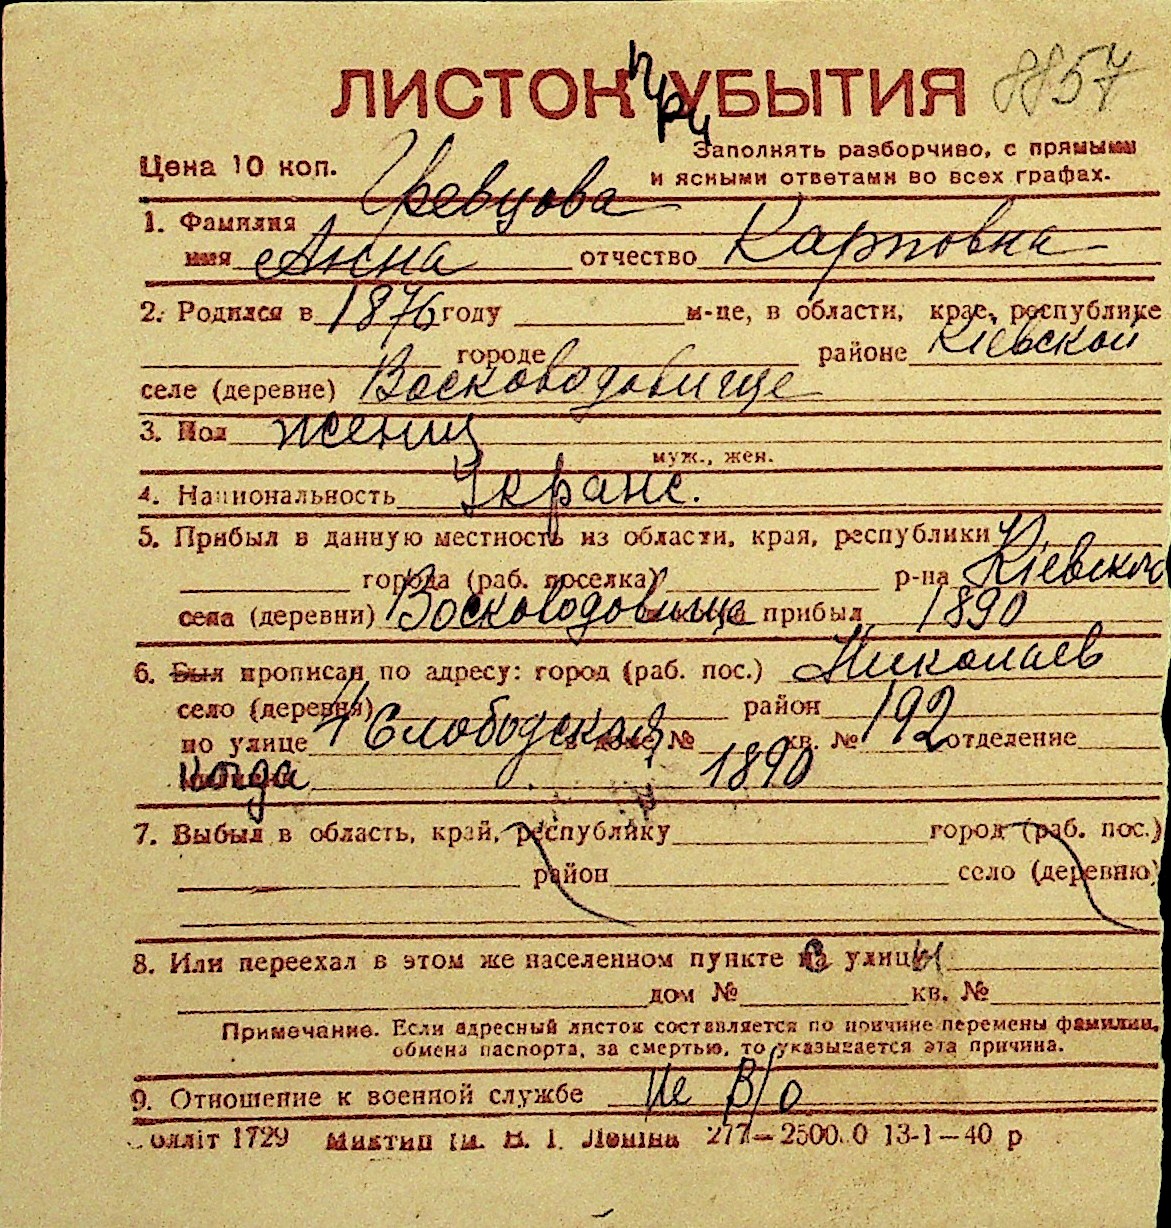 ЛИСТОК при УБЫТИЯ 8857
Цена 10 коп.
Заполнять разборчиво, с прямыми
и ясными ответами во всех графах.
1. Фамилия Гревцова
имя Анна отчество Карповна
2. Родился в 1876 году м-це, в области, крае, республике
городе районе Кіевской
селе (деревне) Восководовище
3. Пол женщ
муж., жен.
4. Национальность Украис.
5. Прибыл в данную местность из области, края, республики
города (раб. поселка) р-на Кіевского
села (деревни) Восководовище прибыл 1890
6. Был прописан по адресу: город (раб. пос.) Николаев
село (деревня) район
по улице 4 Слободская в доме № кв. № 192 отделение
когда 1890
7. Выбыл в область, край, республику город (раб. пос.)
район село (деревню)
8. Или переехал в этом же населенном пункте с улицы
дом № кв. №
Примечание. Если адресный листок составляется по причине перемены фамилии,
обмена паспорта, за смертью, то указывается эта причина.
9. Отношение к военной службе не в/о
олліт 1729 Миктип ім. В. І. Леніна 277—2500.0 13-1—40 р